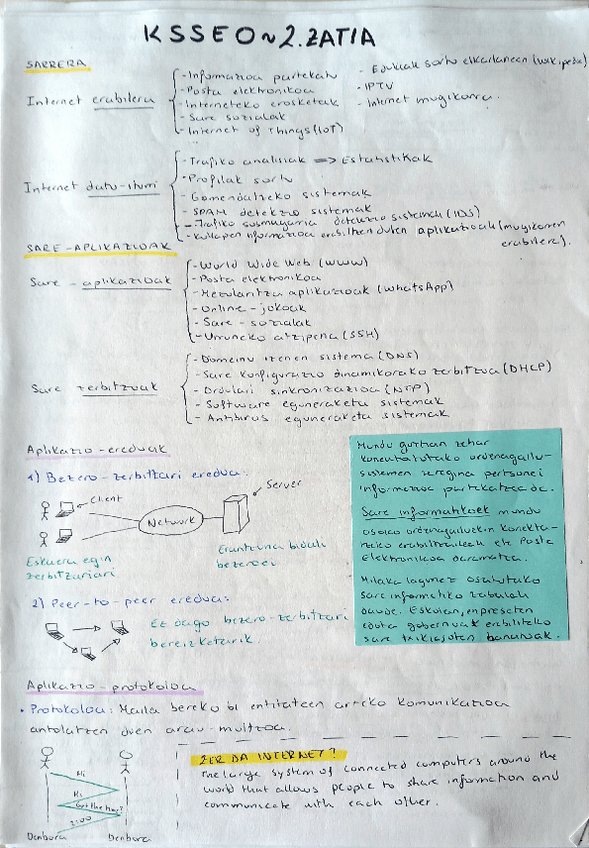 KSSEO ~ 2. ZATIA
SARRERA
Internet erabilera
- Informazioa partekatu
- Posta elektronikoa
- Interneteko erosketak
- Sare sozialak
- Internet of Things (IoT)
- Edukiak sortu elkarlanean (wikipedia)
- IPTV
- Internet mugikorra.
Internet datu-iturri
- Trafiko analisiak => Estatistikak
- Profilak sortu
- Gomendatzeko sistemak
- SPAM detekzio sistemak
- Trafiko susmagarria detekzio sistemak (IDS)
- Kokapen informazioa erabiltzen duten aplikazioak (mugikorren
erabilera).
SARE-APLIKAZIOAK
Sare-aplikazioak
- World Wide Web (WWW)
- Posta elektronikoa
- Mezularitza aplikazioak (WhatsApp)
- Online-jokoak
- Sare-sozialak
- Urruneko atzipena (SSH)
Sare zerbitzuak
- Domeinu izenen sistema (DNS)
- Sare konfigurazio dinamikorako zerbitzua (DHCP)
- Ordulari sinkronizazioa (NTP)
- Software eguneraketa sistemak
- Antibirus eguneraketa sistemak
Aplikazio-ereduak
1) Bezero-zerbitzari eredua:
Client
Network
Server
Eskaera egin
zerbitzariari
Erantzuna bidali
bezeroei
2) Peer-to-peer eredua:
Ez dago bezero-zerbitzari
bereizketarik.
Mundu guztian zehar
konektatutako ordenagailu-
sistemen zeregina pertsonei
informazioa partekatzea da.
Sare informatikoek mundu
osoko ordenagailuekin konekta-
tzeko erabiltzaileek eta Posta
Elektronikoa daramatza.
Milaka lagunez osatutako
sare informatiko zabalak
daude. Eskolan, enpresetan
edota gobernuak erabiltzeko
sare txikiagoten banatuak.
Aplikazio-protokoloa
• Protokoloa: Maila bereko bi entitateen arteko komunikazioa
antolatzen duen arau-multzoa.
Hi
Hi
Got the time?
2:00
Denbora
Denbora
ZER DA INTERNET?
The large system of connected computers around the
world that allows people to share information and
communicate with each other.